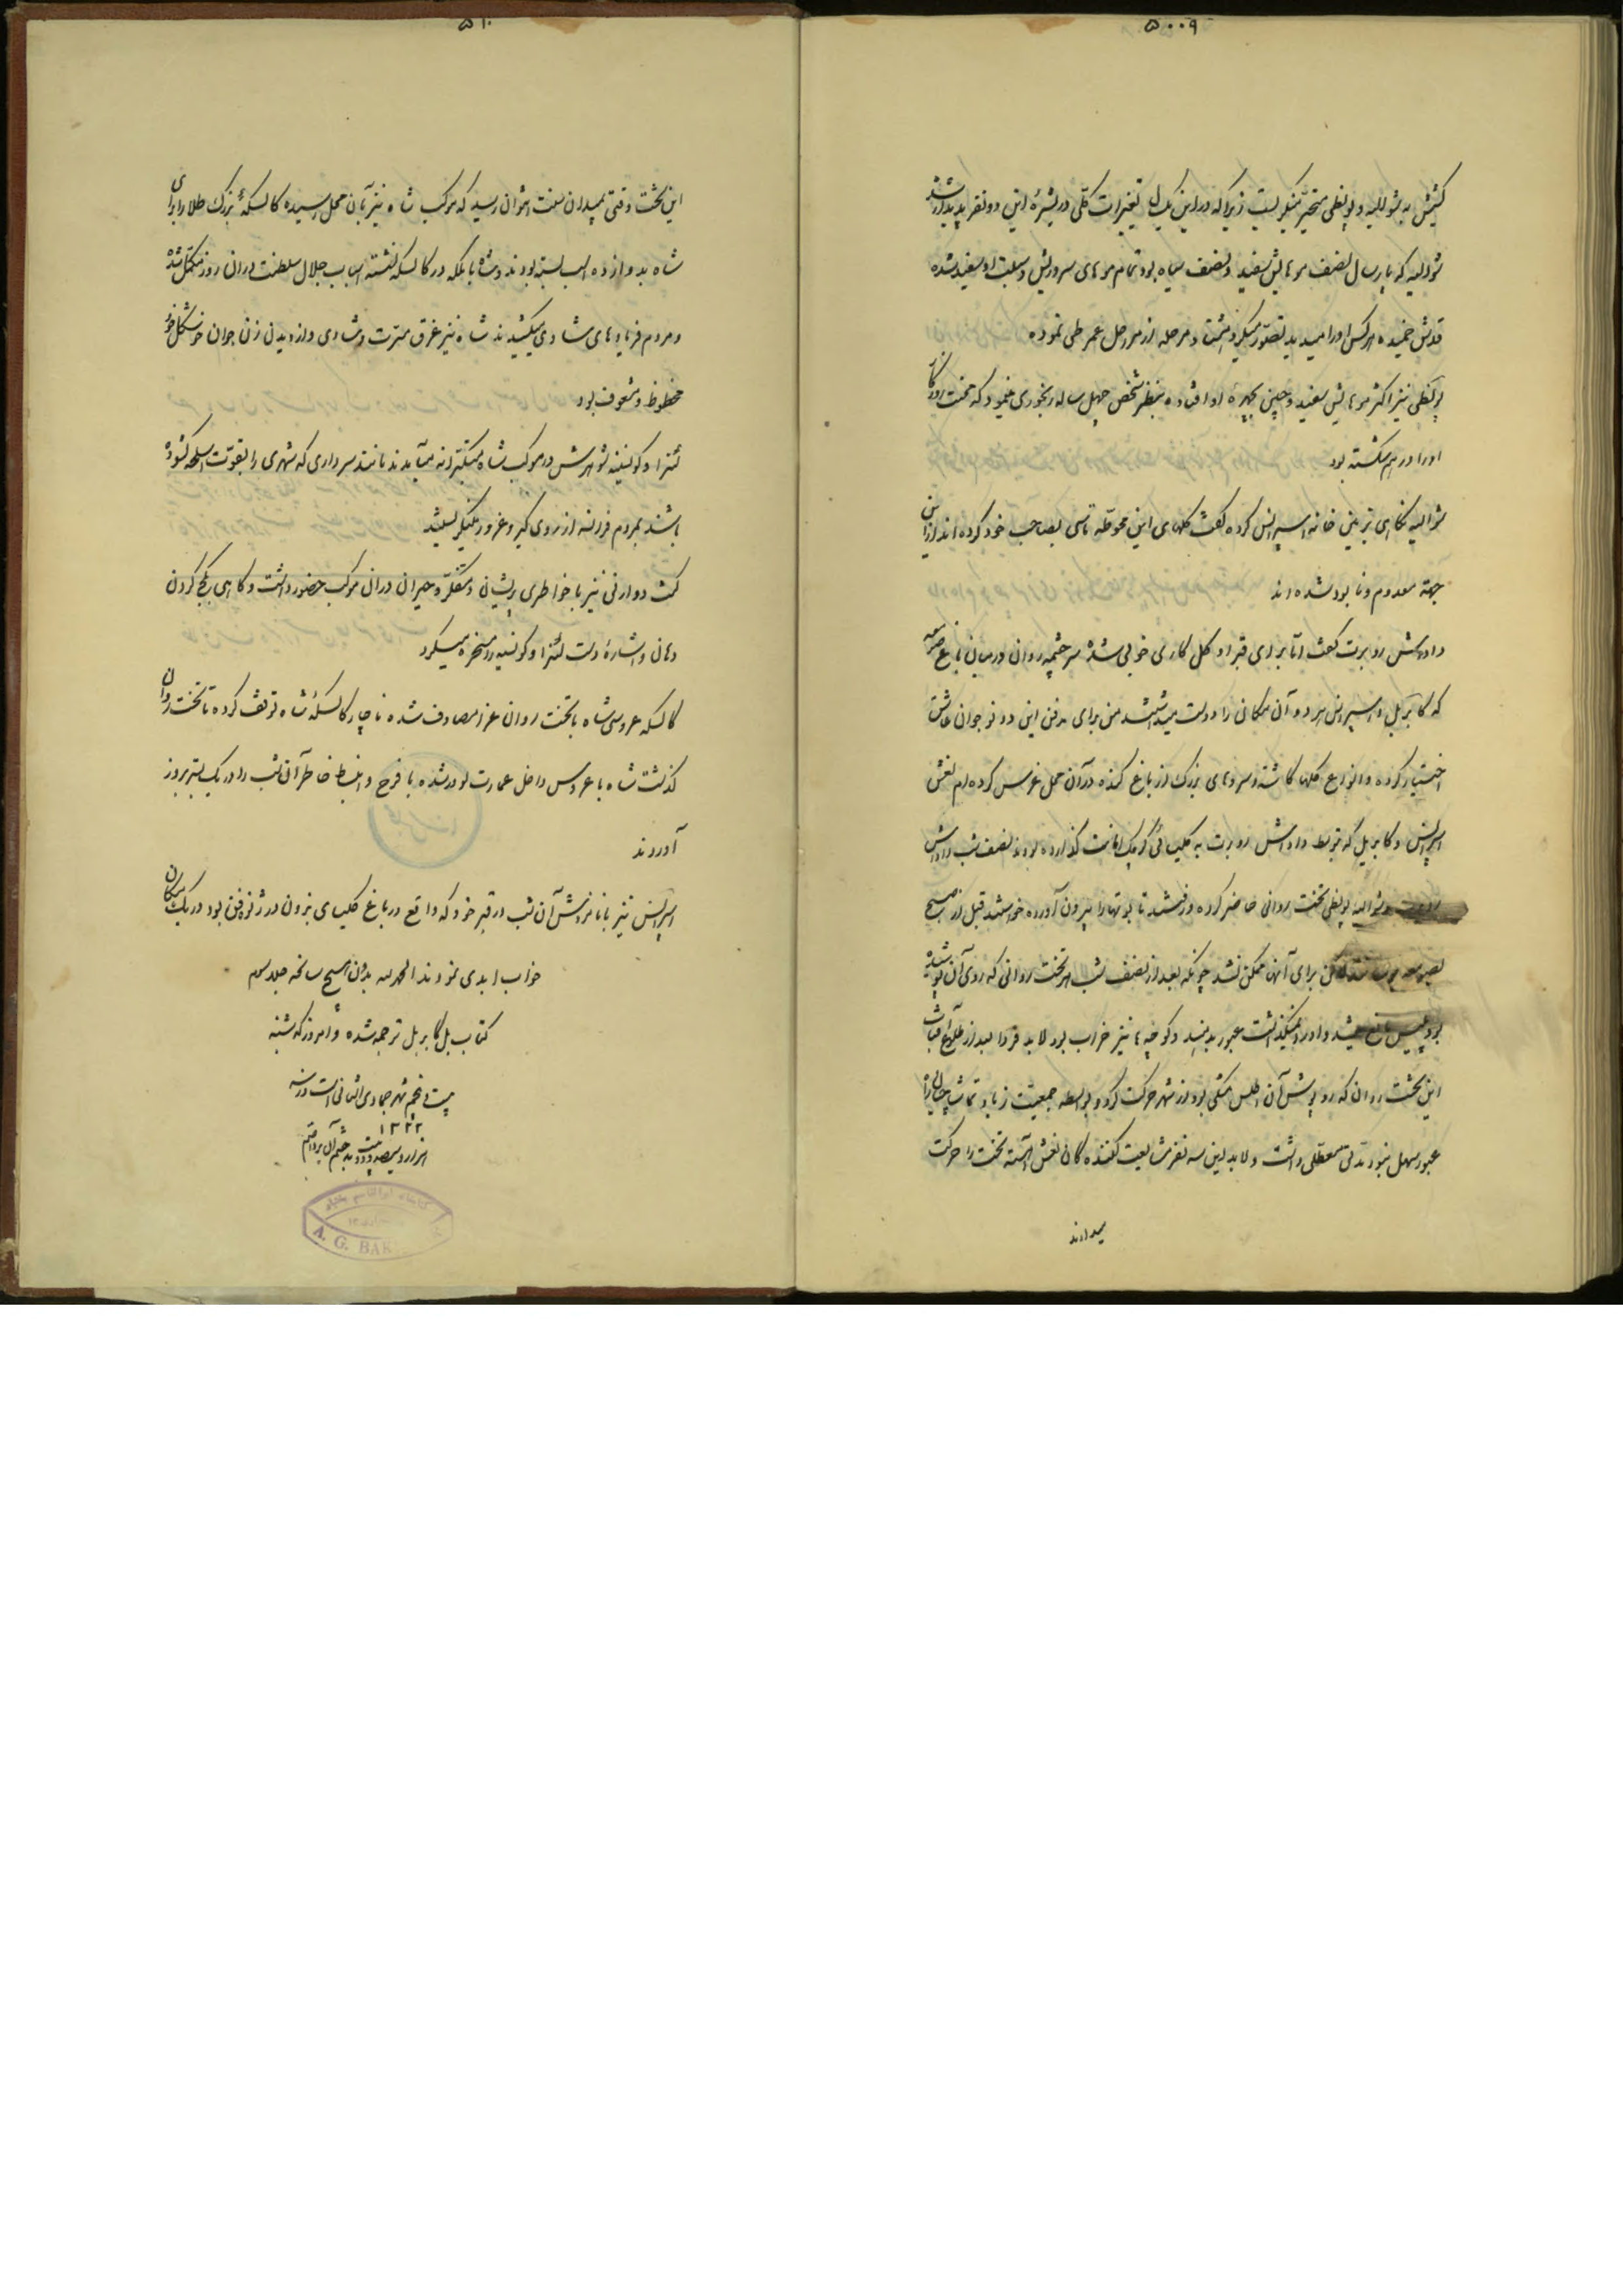 ۵۰۰۹
کشیش به شوالیه و پونطی متحیر مینگریست زیرا که در این یکسال تغییرات کلی در بشرهٔ این دو نفر پدیدار شده
شوالیه که پارسال نصف موهایش سفید و نصف سیاه بود تمام موهای سر و ریش و سبلت او سفید شده
قدش خمیده هر کس او را میدید تصور میکرد هشتاد مرحله از مراحل عمر طی نموده
پونطی نیز اکثر موهایش سفید و چین بچهرهٔ او افتاده بنظر شخص چهل ساله رنجوری مینمود که محنت روزگار
او را در هم شکسته بود
شوالیه نگاهی بزمین خانه اسپرانس کرده گفت گلهای این محوطه تاسی بصاحب خود کرده اند از این
جهة معدوم و نابود شده اند
داداش روبرت گفت اما برای قبر او گل کاری خوبی شده سر چشمه روان در میان باغ صومعه
که گابریل و اسپرانس هر دو آن مکان را دوست میداشتند من برای مدفن این دو نوجوان عاشق
اختیار کرده و انواع گلها کاشته و سروهای بزرگ از باغ کنده در آن محل غرس کرده ام نعش
اسپرانس و گابریل که بتوسط داداش روبرت به کلیسای کوچک امانت گذارده بودند نصف شب داداش
روبرت و شوالیه و پونطی تخت روانی حاضر کرده و رفتند تابوتها را بیرون آورده خواستند قبل از صبح
بصومعه برسند لکن برای آنها ممکن نشد چونکه بعد از نصف شب هر تخت روانی که روی آن پوشیده
بود پلیس مانع میشد و او را نمیگذاشت عبور بدهند و کوچه ها نیز خراب بود لابد فردا بعد از طلوع آفتاب
این تخت روان که روپوش آن اطلس مشکی بود از شهر حرکت کرد و بواسطه جمعیت زیاد تماشاچیان راه
عبور سهل نبود مدتی معطلی داشت و لابد این سه نفر مشایعت کننده گان نعش آهسته تخت را حرکت
میدادند
۵۱۰
این تخت وقتی بمیدان سنت رسید که موکب شاه نیز بآن محل رسیده کالسکهٔ بزرگ طلا را برای
شاه بدوازده اسب بسته بودند و شاه با ملکه در کالسکه نشسته اسباب جلال سلطنت در آن روز مکمل شده
و مردم فریادهای شادی میکشیدند شاه نیز غرق مسرت و شادی و از دیدن زن جوان خوشگل خود
محظوظ و مشعوف بود
لئنرا و کونسینه شوهرش در موکب شاه متکبرانه میآمدند مانند سرداری که شهری را بقوت اسلحه گشوده
باشند بمردم فرانسه از روی کبر و غرور مینگریستند
کنت دوارنی نیز با خاطری پریشان و متفکر و حیران در آن موکب حضور داشت و گاهی بکج کردن
دهان و اشارهٔ دست لئنرا و کونسینه را مسخره میکرد
کالسکه عروسی شاه با تخت روان عزا مصادف شده ناچار کالسکهٔ شاه توقف کرده تا تخت روان
گذشت شاه با عروس داخل عمارت لوور شده با فرح و انبساط خاطر آن شب را در یک بستر بروز
آوردند
اسپرانس نیز با نامزدش آن شب در قبر خود که واقع در باغ کلیسای بزون بود در یک مکان
خواب ابدی نمودند الحمد لله بعون المسیح سانحه جلد سیم
کتاب بل گابریل ترجمه شده و امروز که شنبه
بیست و پنجم شهر جمادی الثانی است در سنه
۱۳۲۲
هزار و سیصد و بیست و دو به ختم آن پرداختم
A. G. BAK